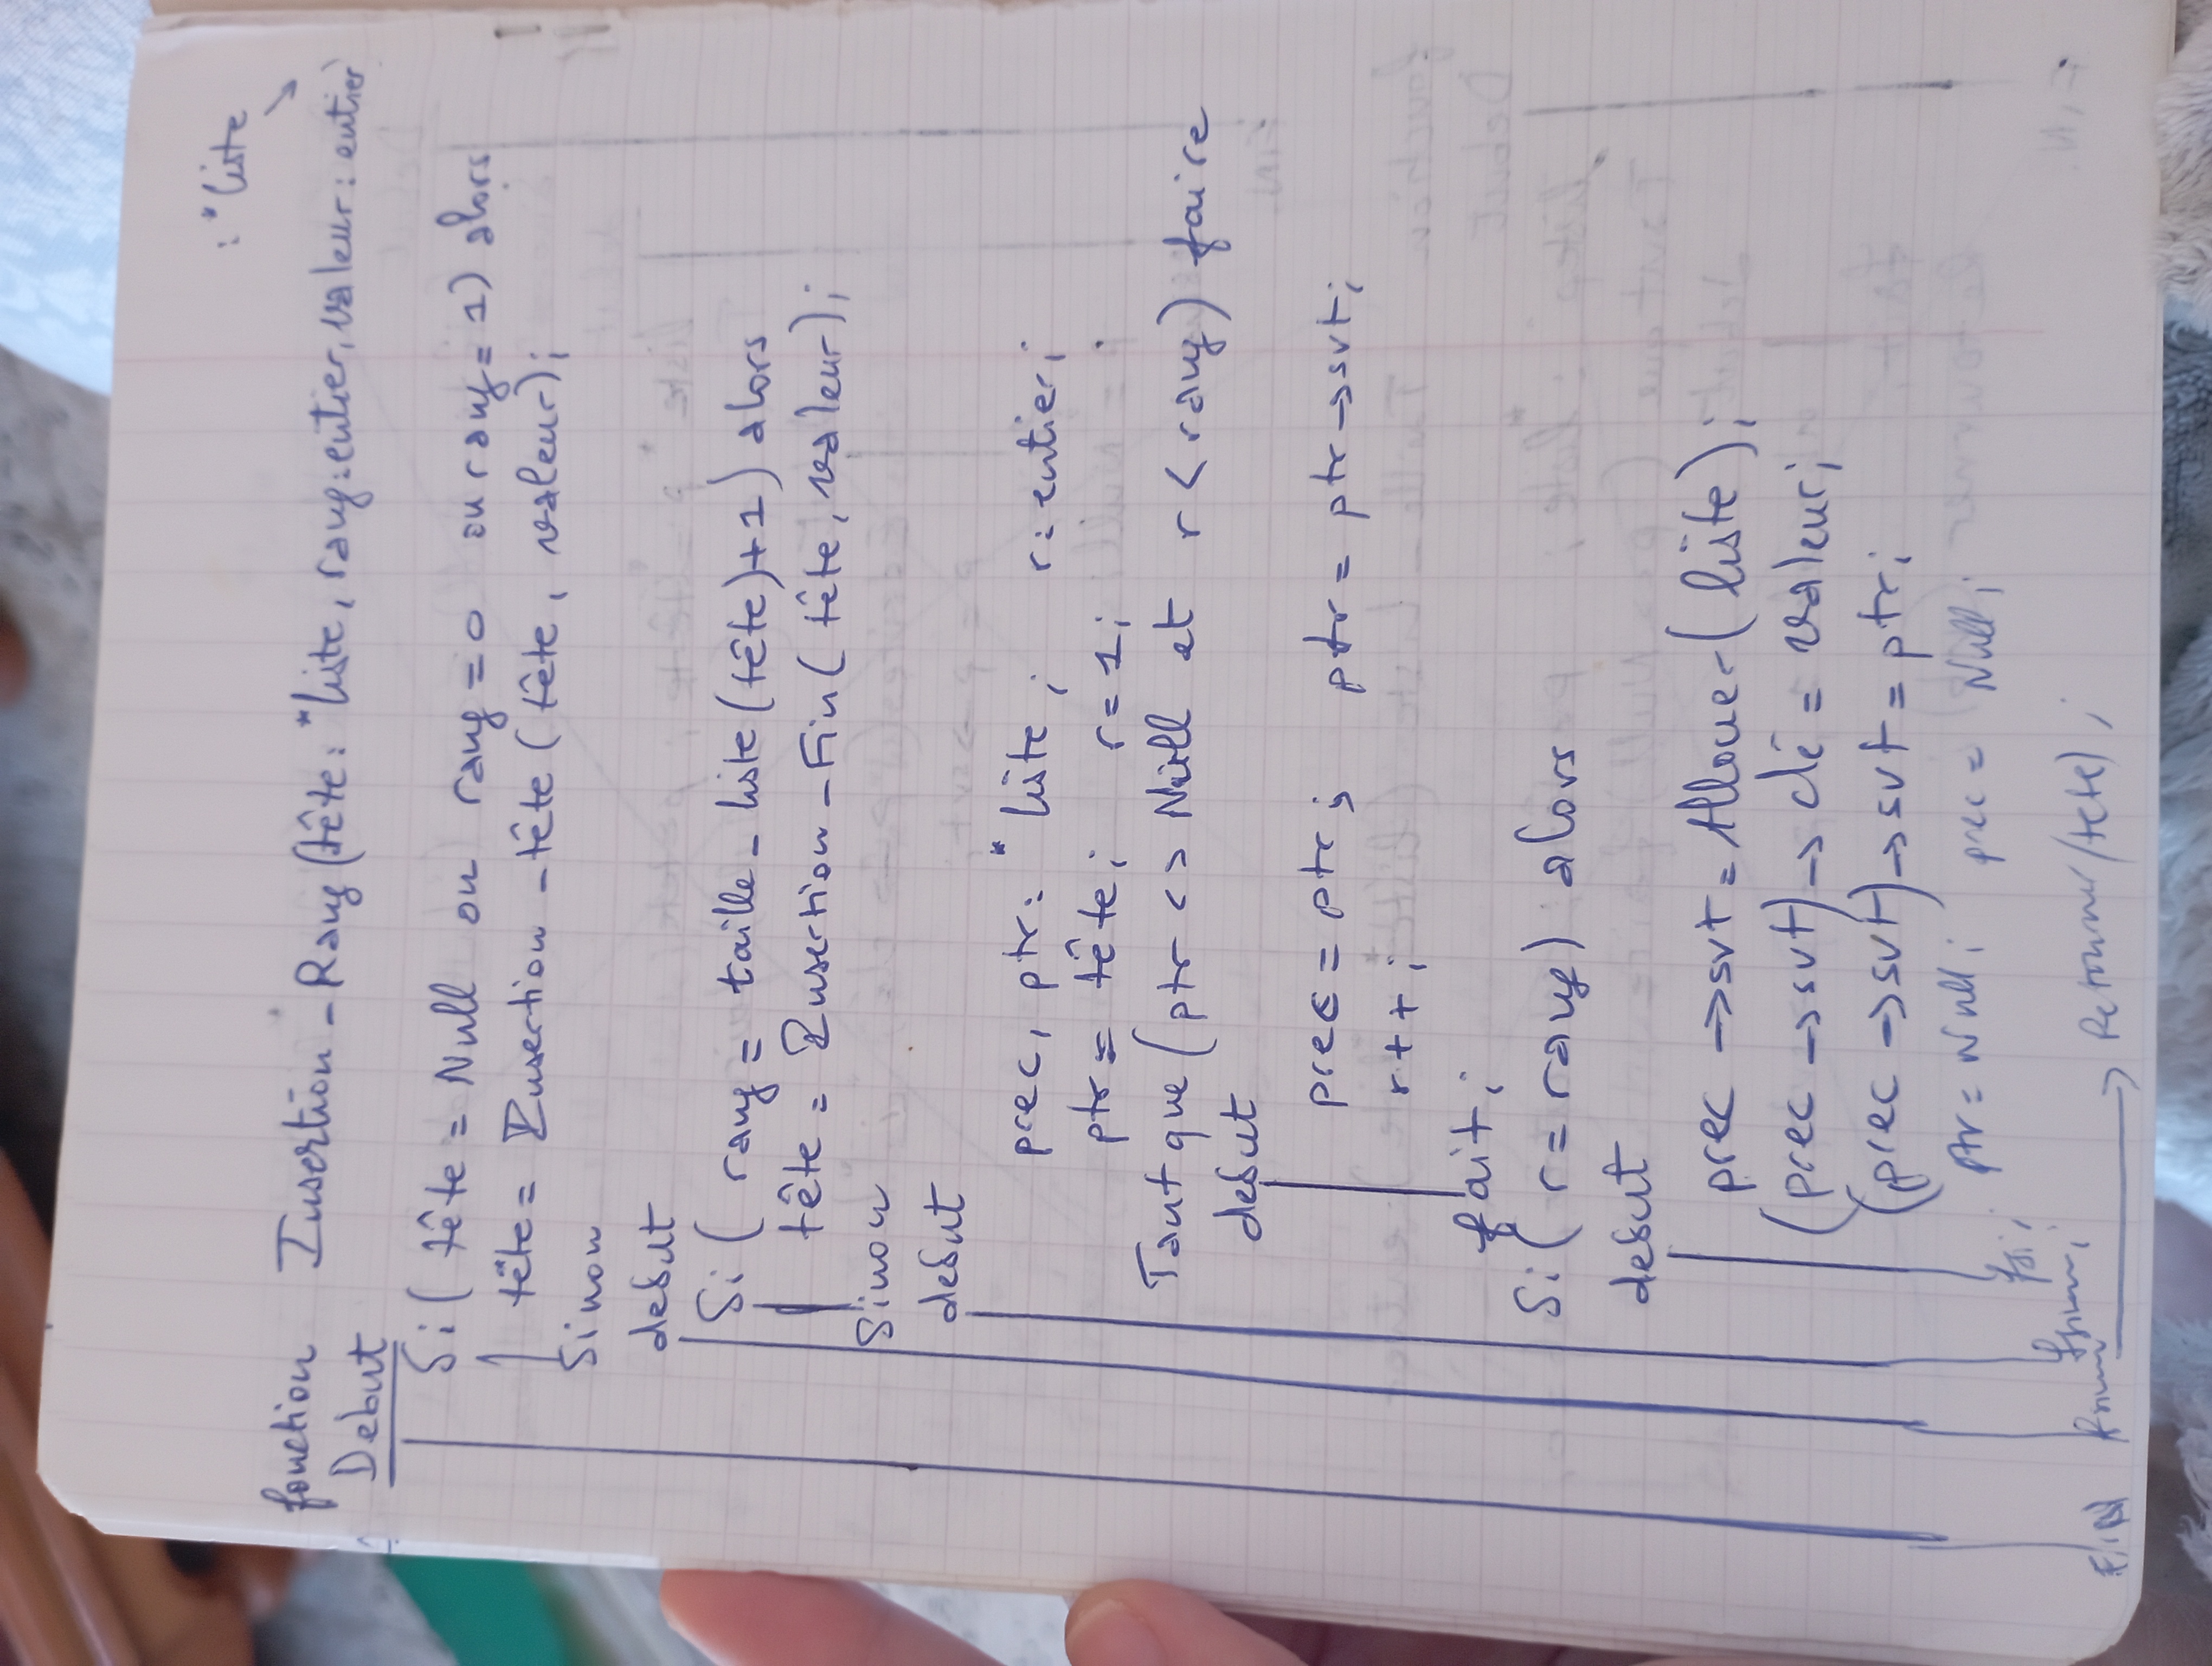 : *liste
fonction Insertion_Rang (tête: *liste, rang:entier, valeur: entier)
Debut
Si ( tête = Null ou rang = 0 ou rang = 1) alors
tête = Insertion_tête ( tête, valeur);
Sinon
debut
Si ( rang = taille_liste (tête)+1) alors
tête = Insertion_Fin ( tête, valeur);
Sinon
debut
prec, ptr: *liste ; r: entier;
ptr = tête; r = 1;
Tant que (ptr <> Null et r < rang) faire
debut
prec = ptr; ptr = ptr → svt;
r++;
fait;
Si ( r = rang) alors
debut
prec → svt = Allouer (liste);
(prec → svt) → clé = valeur;
(prec → svt) → svt = ptr;
ptr = Null; prec = Null;
fsi;
fsinon;
FIN fsinon → Retourner (tete);